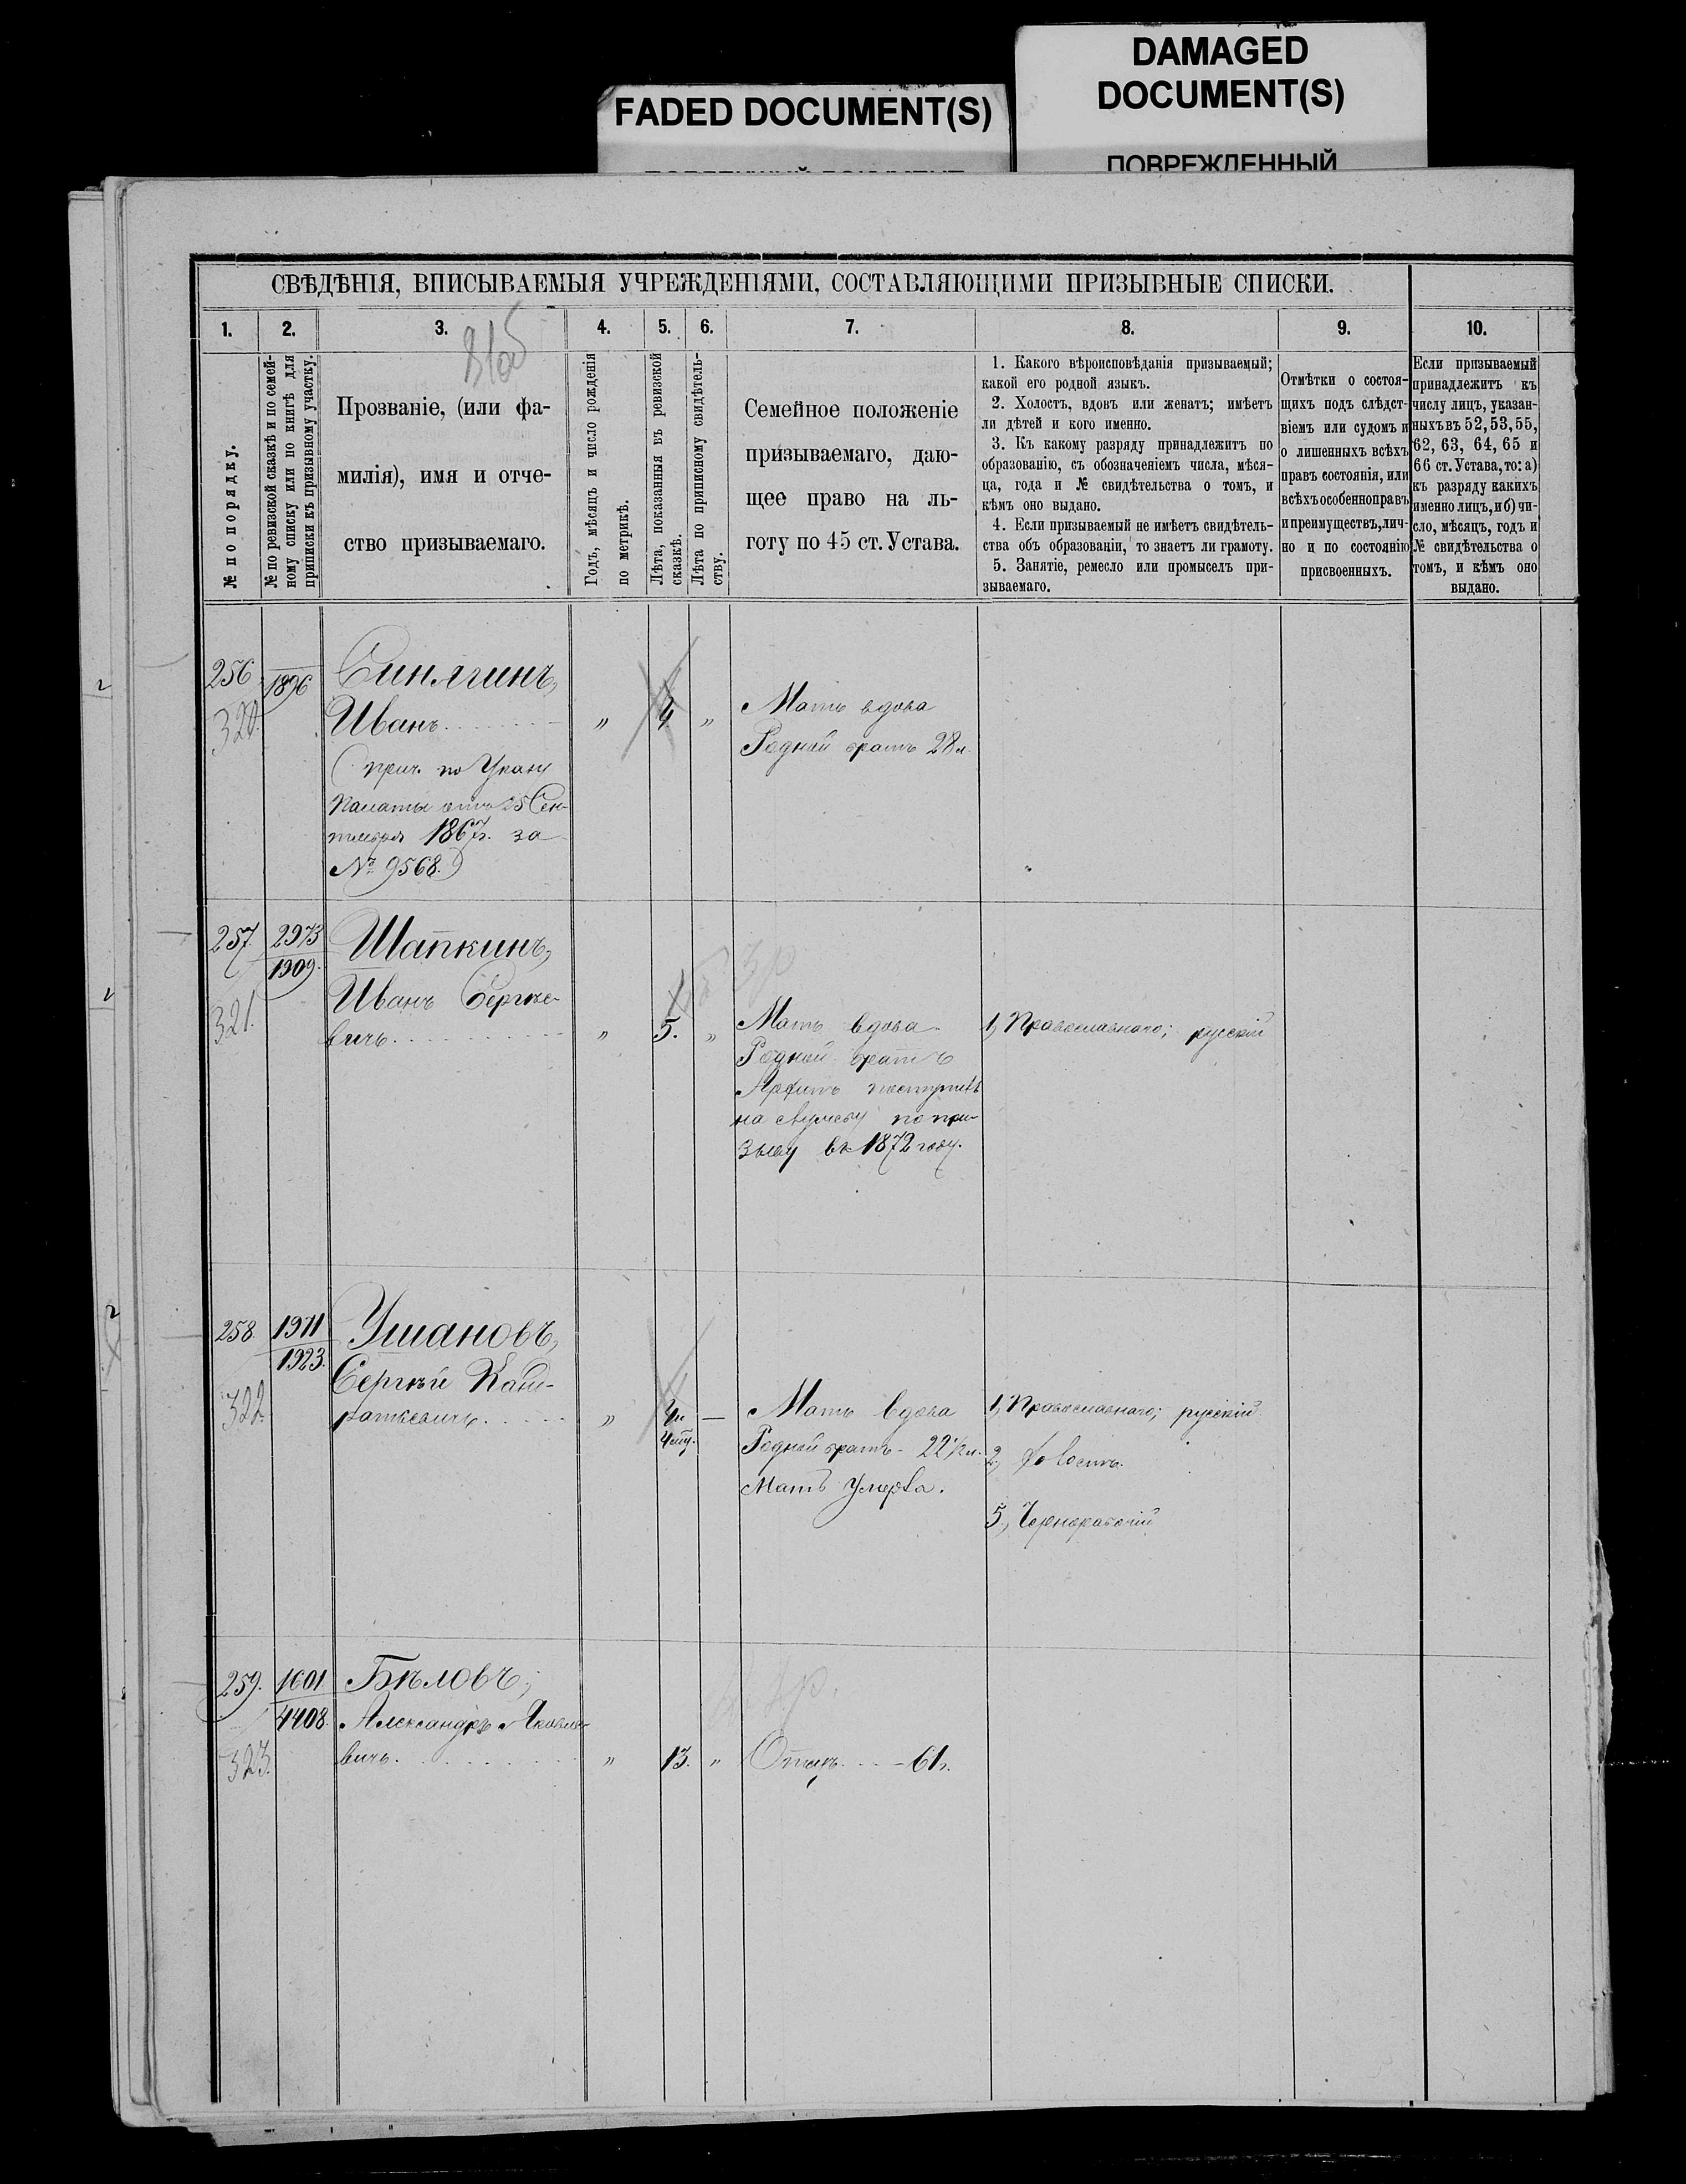 FADED DOCUMENT(S)
DAMAGED
DOCUMENT(S)
ПОВРЕЖДЕННЫЙ
СВѢДѢНІЯ, ВПИСЫВАЕМЫЯ УЧРЕЖДЕНІЯМИ, СОСТАВЛЯЮЩИМИ ПРИЗЫВНЫЕ СПИСКИ.
1. 2. 3. 4. 5. 6. 7. 8. 9. 10.
№ по порядку.
№ по ревизской сказкѣ и по семей-
ному списку или по книгѣ для
приписки къ призывному участку.
Прозваніе, (или фа-
милія), имя и отче-
ство призываемаго.
Годъ, мѣсяцъ и число рожденія
по метрикѣ.
Лѣта, показанныя въ ревизской
сказкѣ.
Лѣта по приписному свидѣтель-
ству.
Семейное положеніе
призываемаго, даю-
щее право на ль-
готу по 45 ст. Устава.
1. Какого вѣроисповѣданія призываемый;
какой его родной языкъ.
2. Холостъ, вдовъ или женатъ; имѣетъ
ли дѣтей и кого именно.
3. Къ какому разряду принадлежитъ по
образованію, съ обозначеніемъ числа, мѣся-
ца, года и № свидѣтельства о томъ, и
кѣмъ оно выдано.
4. Если призываемый не имѣетъ свидѣтель-
ства объ образованіи, то знаетъ ли грамоту.
5. Занятіе, ремесло или промыселъ при-
зываемаго.
Отмѣтки о состоя-
щихъ подъ слѣдст-
віемъ или судомъ и
о лишенныхъ всѣхъ
правъ состоянія, или
всѣхъ особенно правъ
и преимуществъ, лич-
но и по состоянію
присвоенныхъ.
Если призываемый
принадлежитъ къ
числу лицъ, указан-
ныхъ въ 52, 53, 55,
62, 63, 64, 65 и
66 ст. Устава, то: а)
къ разряду какихъ
именно лицъ, и б) чи-
сло, мѣсяцъ, годъ и
№ свидѣтельства о
томъ, и кѣмъ оно
выдано.
256
1896
320.
Синягинъ,
Иванъ
(прич. по Указу
Палаты отъ 25 Сен-
тября 1867 г. за
№ 9568.)
" "
Мать вдова
Родной братъ 28 л.
257.
2973
1909.
321.
Шапкинъ,
Иванъ Сергѣе-
вичъ
" 5. "
Мать вдова
Родной братъ
поступилъ
на службу по при-
зыву въ 1872 году.
1, Православнаго; русскій
258.
1911
1923.
322.
Ушановъ,
Сергѣй Конд-
ратьевичъ
" —
Мать вдова
Родной братъ - 22 1/2 л.
Мать умерла.
1, Православнаго; русскій
2, Холостъ.
5, Чернорабочій
259.
1601
4408.
323.
Бѣловъ,
Александръ Яковле-
вичъ
" 13. "
Отецъ 61 г.